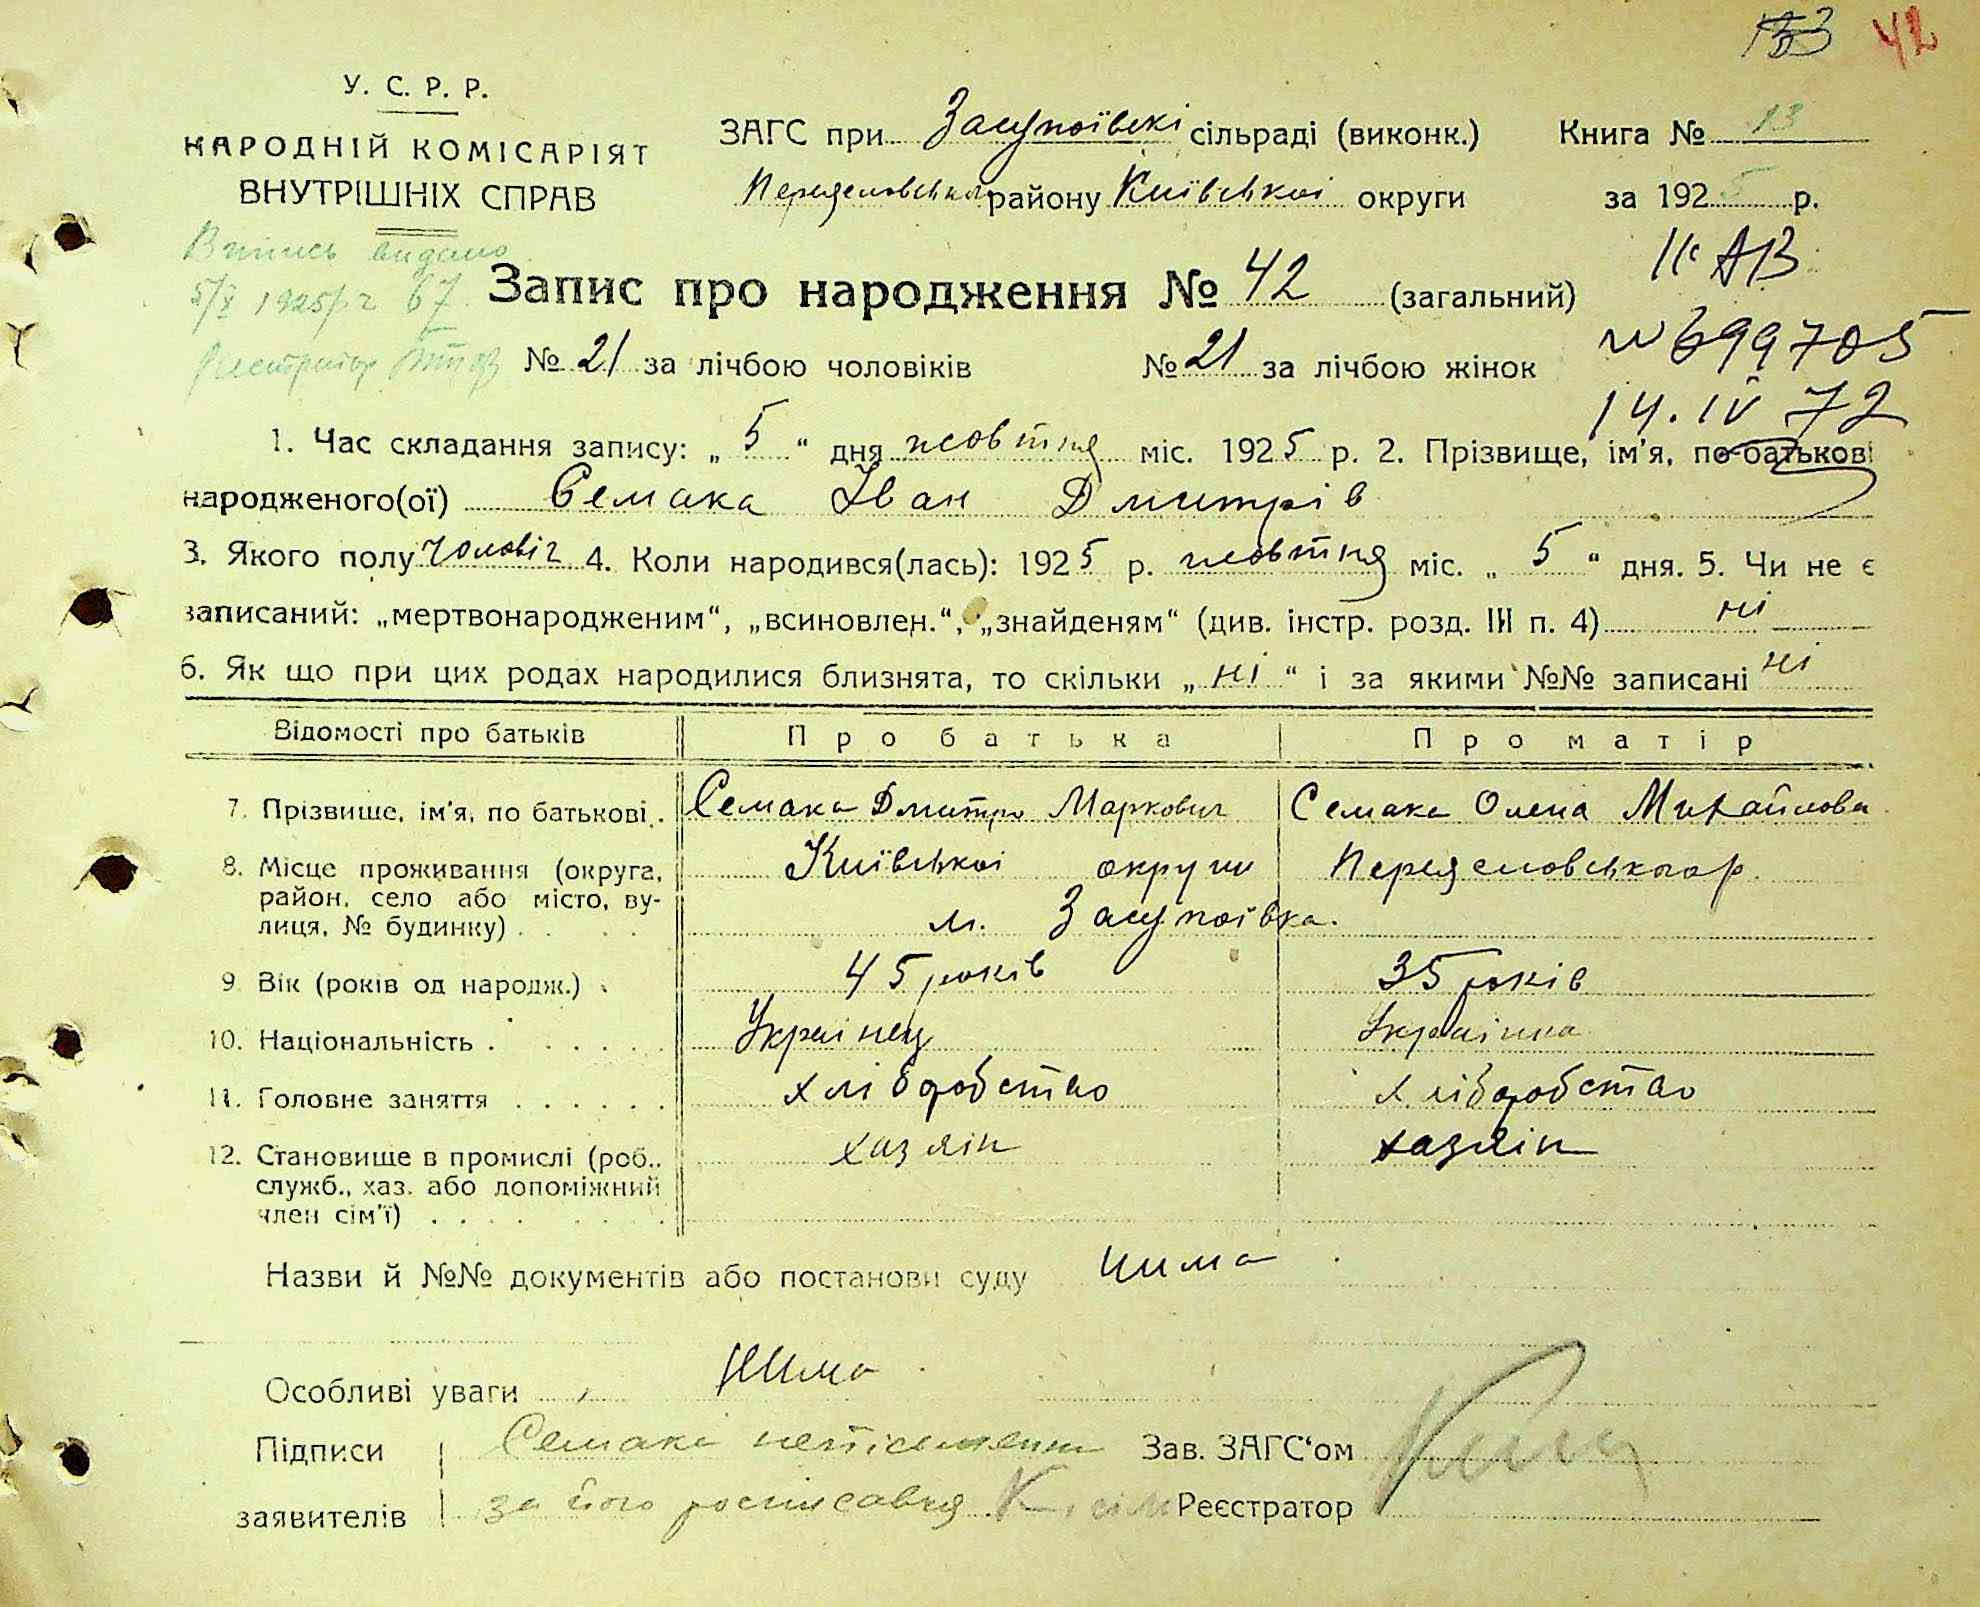 42
У. С. Р. Р.
НАРОДНІЙ КОМІСАРІЯТ
ВНУТРІШНІХ СПРАВ
ЗАГС при Засупоївскі сільраді (виконк.) Книга № 13
району Київськоі округи за 1925 р.
Випись видано
5/X 1925 р. № 67
Запис про народження № 42 (загальний)
ІІ АВ
№ 21 за лічбою чоловіків № 21 за лічбою жінок
№ 699705
14. IV 72
1. Час складання запису: „ 5 “ дня жовтня міс. 1925 р. 2. Прізвище, ім'я, по-батькові
народженого(ої) Семака Іван Дмитрів
3. Якого полу чоловіч 4. Коли народився(лась): 1925 р. жовтня міс. „ 5 “ дня. 5. Чи не є
записаний: „мертвонародженим“, „всиновлен.“, „знайденям“ (див. інстр. розд. III п. 4) ні
6. Як що при цих родах народилися близнята, то скільки „ ні “ і за якими №№ записані ні
Відомості про батьків Про батька Про матір
7. Прізвище, ім'я, по батькові. Семака Дмитро Маркович Семака Олена Михайлова
8. Місце проживання (округа, Київськоі округи
район, село або місто, ву-
лиця, № будинку) м. Засупоівка.
9 Вік (років од народж.) 45 років 35 років
10. Національність Украінец Украінка
11. Головне заняття хліборобство хліборобство
12. Становище в промислі (роб., хазяін хазяін
служб., хаз. або допоміжний
член сім'ї)
Назви й №№ документів або постанови суду нима
Особливі уваги нима
Підписи Семака неписьменни Зав. ЗАГС'ом
заявителів за його росписався Реєстратор